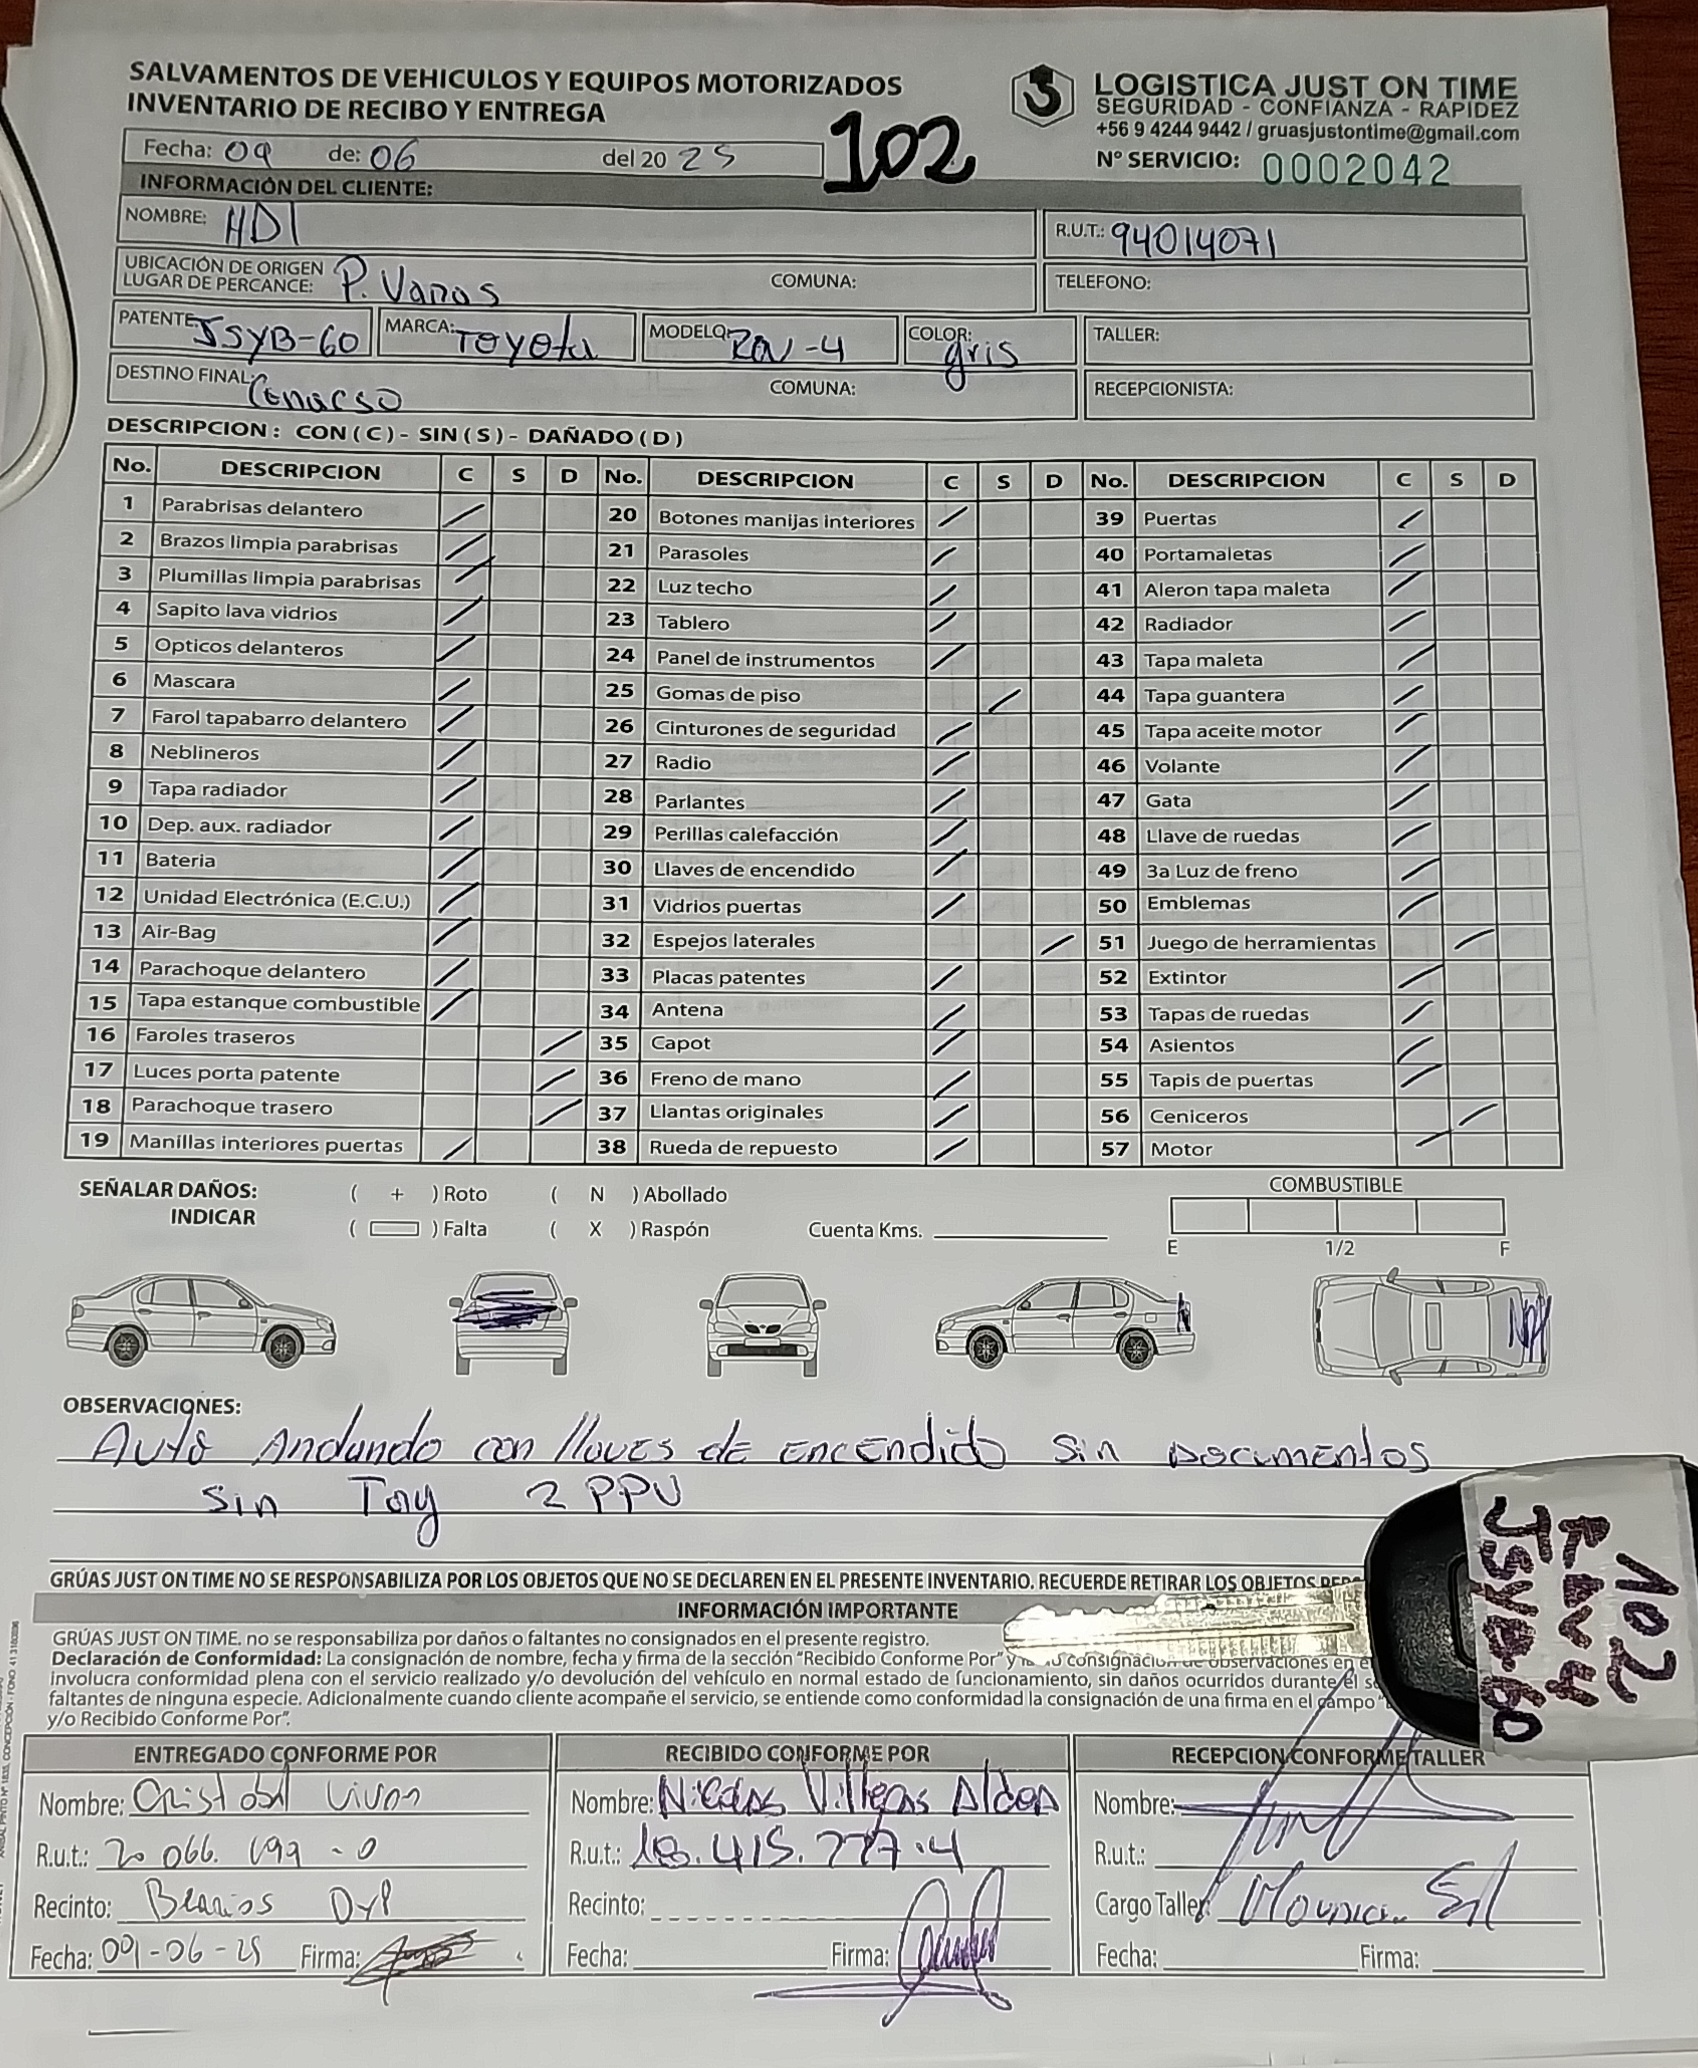 SALVAMENTOS DE VEHICULOS Y EQUIPOS MOTORIZADOS
INVENTARIO DE RECIBO Y ENTREGA
102
LOGISTICA JUST ON TIME
SEGURIDAD - CONFIANZA - RAPIDEZ
+56 9 4244 9442 / gruasjustontime@gmail.com
N° SERVICIO: 0002042
Fecha: 09 de: 06 del 20 25
INFORMACIÓN DEL CLIENTE:
NOMBRE: HDI R.U.T.: 94014071
UBICACIÓN DE ORIGEN
LUGAR DE PERCANCE: P. Varas COMUNA: TELEFONO:
PATENTE: JSYB-60 MARCA: TOYOta MODELO: RAV-4 COLOR: gris TALLER:
DESTINO FINAL: COMUNA: RECEPCIONISTA:
DESCRIPCION: CON ( C ) - SIN ( S ) - DAÑADO ( D )
No. DESCRIPCION C S D No. DESCRIPCION C S D No. DESCRIPCION C S D
1 Parabrisas delantero 20 Botones manijas interiores 39 Puertas
2 Brazos limpia parabrisas 21 Parasoles 40 Portamaletas
3 Plumillas limpia parabrisas 22 Luz techo 41 Aleron tapa maleta
4 Sapito lava vidrios 23 Tablero 42 Radiador
5 Opticos delanteros 24 Panel de instrumentos 43 Tapa maleta
6 Mascara 25 Gomas de piso 44 Tapa guantera
7 Farol tapabarro delantero 26 Cinturones de seguridad 45 Tapa aceite motor
8 Neblineros 27 Radio 46 Volante
9 Tapa radiador 28 Parlantes 47 Gata
10 Dep. aux. radiador 29 Perillas calefacción 48 Llave de ruedas
11 Bateria 30 Llaves de encendido 49 3a Luz de freno
12 Unidad Electrónica (E.C.U.) 31 Vidrios puertas 50 Emblemas
13 Air-Bag 32 Espejos laterales 51 Juego de herramientas
14 Parachoque delantero 33 Placas patentes 52 Extintor
15 Tapa estanque combustible 34 Antena 53 Tapas de ruedas
16 Faroles traseros 35 Capot 54 Asientos
17 Luces porta patente 36 Freno de mano 55 Tapis de puertas
18 Parachoque trasero 37 Llantas originales 56 Ceniceros
19 Manillas interiores puertas 38 Rueda de repuesto 57 Motor
SEÑALAR DAÑOS: ( + ) Roto ( N ) Abollado COMBUSTIBLE
INDICAR ( ) Falta ( X ) Raspón Cuenta Kms.
E 1/2 F
OBSERVACIONES:
Auto Andando con llaves de encendido sin Documentos
sin Tag 2 PPU
102
RAV4
JSYB-60
GRÚAS JUST ON TIME NO SE RESPONSABILIZA POR LOS OBJETOS QUE NO SE DECLAREN EN EL PRESENTE INVENTARIO. RECUERDE RETIRAR LOS OBJETOS
INFORMACIÓN IMPORTANTE
GRÚAS JUST ON TIME. no se responsabiliza por daños o faltantes no consignados en el presente registro.
Declaración de Conformidad: La consignación de nombre, fecha y firma de la sección "Recibido Conforme Por" y consignación de observaciones en
involucra conformidad plena con el servicio realizado y/o devolución del vehículo en normal estado de funcionamiento, sin daños ocurridos durante el
faltantes de ninguna especie. Adicionalmente cuando cliente acompañe el servicio, se entiende como conformidad la consignación de una firma en el campo
y/o Recibido Conforme Por".
ENTREGADO CONFORME POR
Nombre: Cristobal
R.u.t.: 20 066. 699 - 0
Recinto: DyP
Fecha: 09-06-25 Firma:
RECIBIDO CONFORME POR
Nombre: Nicolas Villegas
R.u.t.: 18.415.777.4
Recinto:
Fecha: Firma:
RECEPCION CONFORME TALLER
Nombre:
R.u.t.:
Cargo Taller:
Fecha: Firma: